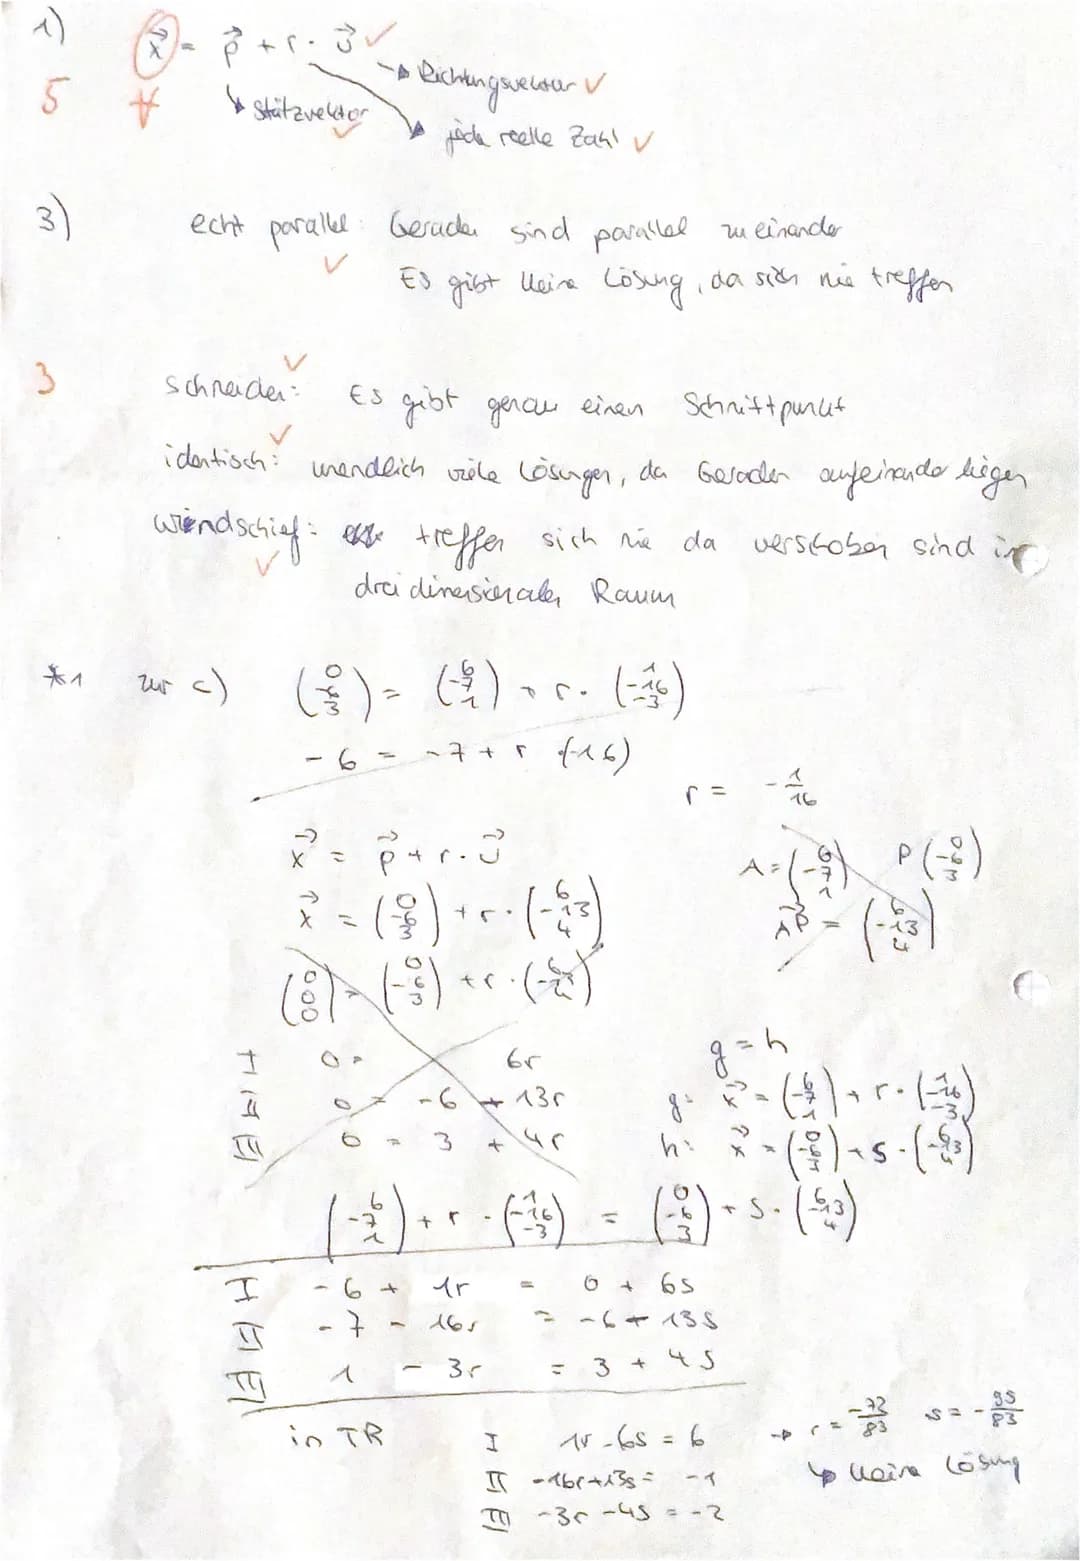 1)
x⃗ = p⃗ + r · u⃗ ✓
→ Richtungsvektor ✓
5
↳ Stützvektor ✓
jede reelle Zahl ✓
3)
echt parallel: Geraden sind parallel zueinander
✓
Es gibt keine Lösung, da sich nie treffen
3
schneiden: Es gibt genau einen Schnittpunkt
✓
identisch: unendlich viele Lösungen, da Geraden aufeinander liegen
✓
windschief: treffen sich nie da verschoben sind in
✓
dreidimensionalen Raum
*1 zur c) (0 -6 3) = (6 -7 1) + r · (1 -16 -3)
-6 = -7 + r (-16)
r = -1/16
x⃗ = p⃗ + r · u⃗
A = (6 -7 1) P (0 -6 3)
x⃗ = (0 -6 3) + r · (6 -13 4)
AP⃗ = (6 -13 4)
(0 0 0) = (0 -6 3) + r · (6 -13 4)
g = h
I 0 = 6r
g: x⃗ = (6 -7 1) + r · (1 -16 -3)
II 0 = -6 + 13r
h: x⃗ = (0 -6 3) + s · (6 -13 4)
III 0 = 3 + 4r
(-6 -7 1) + r · (1 -16 -3) = (0 -6 3) + s · (6 -13 4)
I -6 + 1r = 0 + 6s
II -7 - 16r = -6 + 13s
III 1 - 3r = 3 + 4s
in TR
I 1r - 6s = 6
→ r = -72/83 s = -95/83
II -16r + 13s = -1
↳ keine Lösung
III -3r - 4s = -2